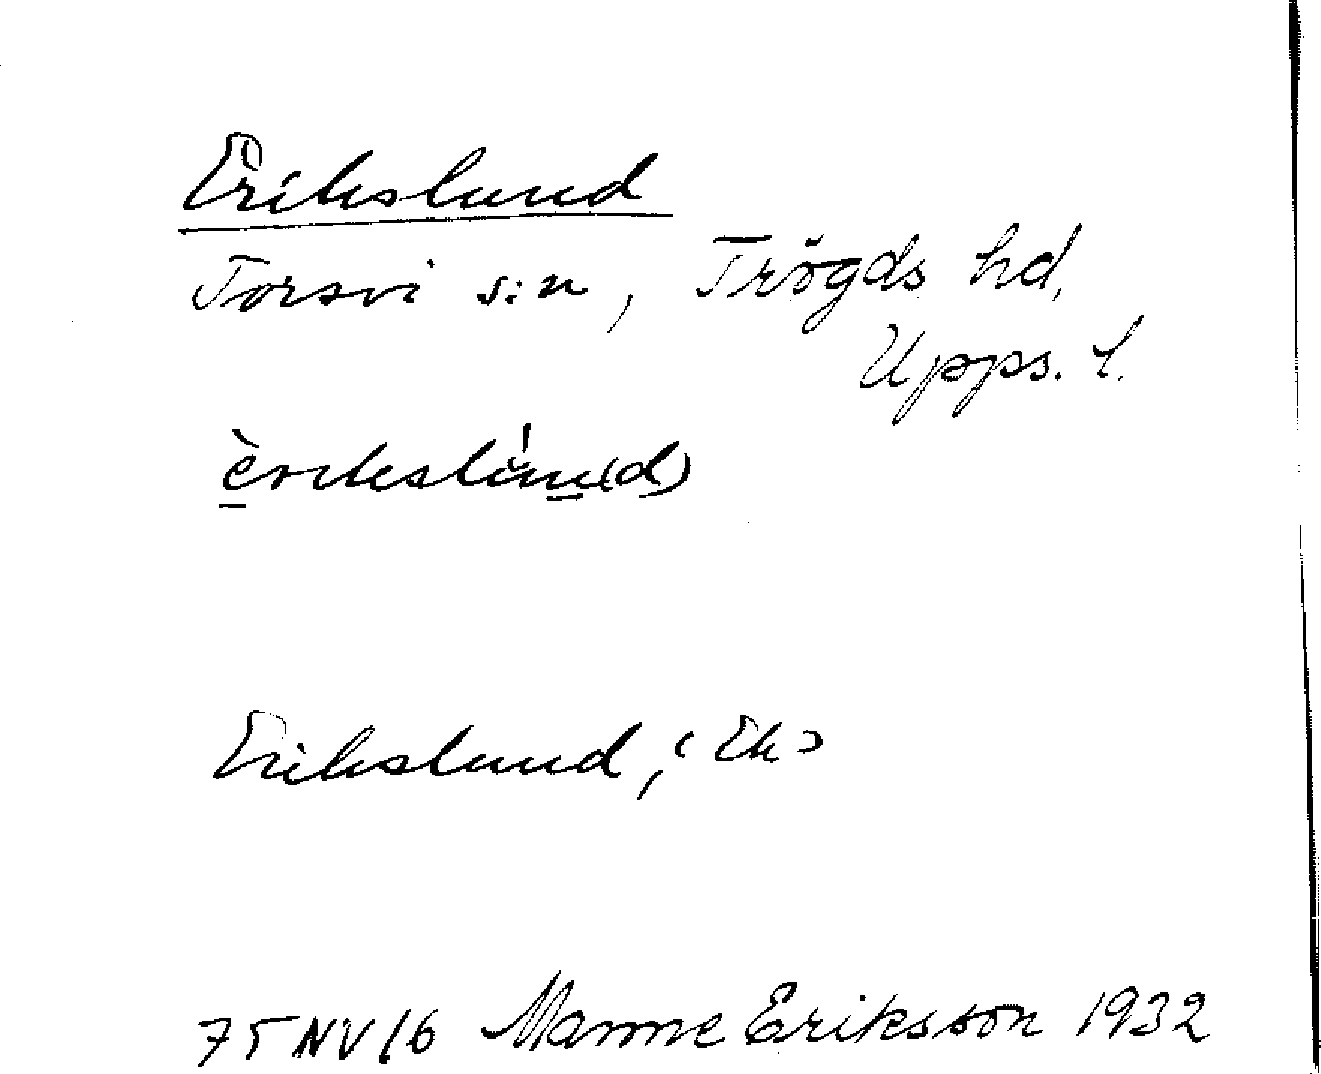 Erikslund
Torsvi s:n, Trögds hd,
Upps. l.
èrikslùn(d)
Erikslund, (Ek)
75NV/6 Manne Eriksson 1932